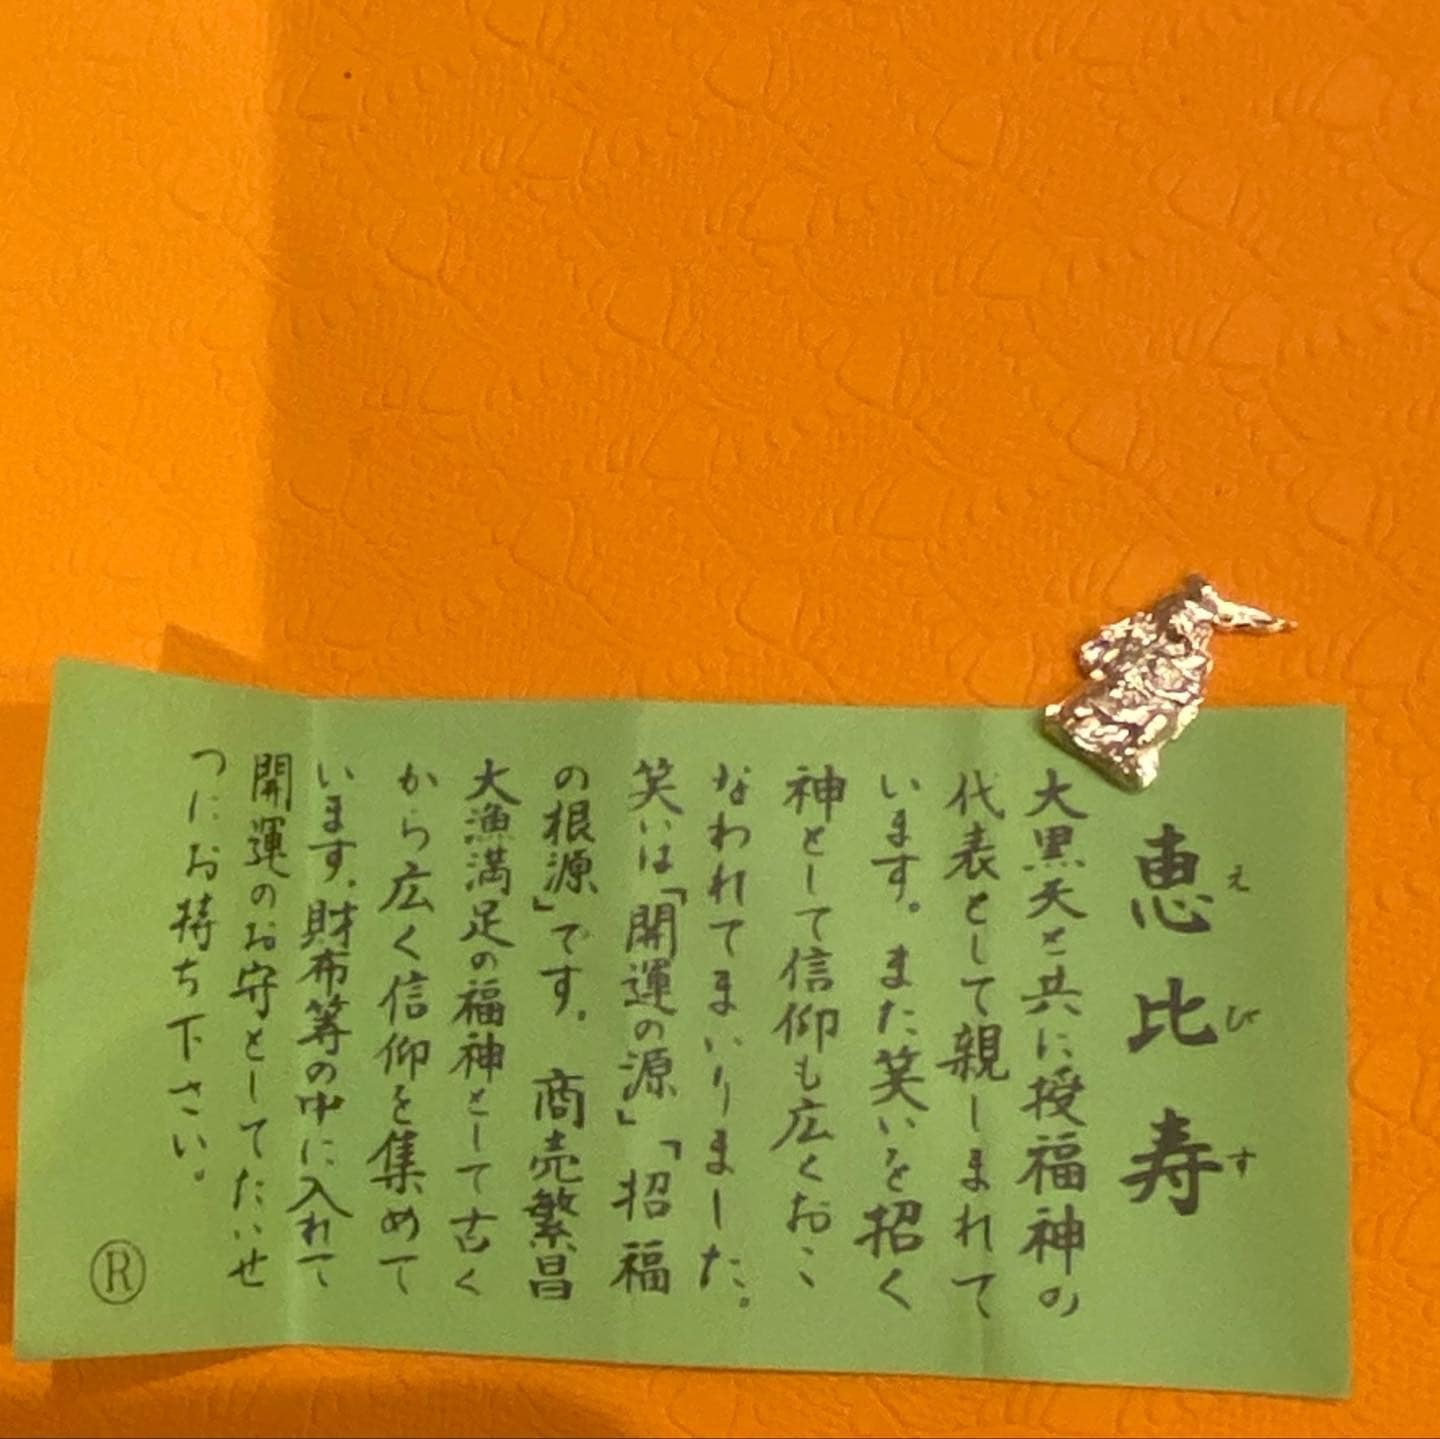 恵比寿
えびす
大黒天と共に授福神の
代表として親しまれて
います。また笑いを招く
神として信仰も広くおこ
なわれてまいりました。
笑いは「開運の源」「招福
の根源」です。商売繁昌
大漁満足の福神として古く
から広く信仰を集めて
います。財布等の中に入れて
開運のお守としてたいせ
つにお持ち下さい。
Ⓡ